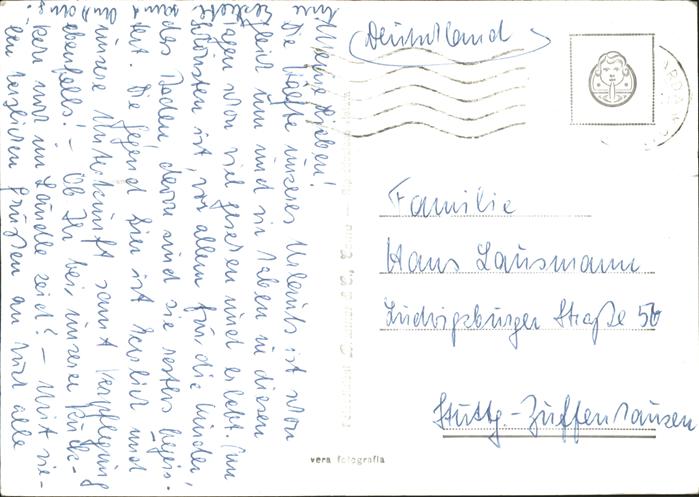 Meine Lieben!
Die Hälfte unseres Urlaubs ist schon
gleich um und wir haben in diesen
Tagen schon viel gesehen und erlebt. Am
schönsten ist, vor allem für die Kinder,
das Baden, davon sind sie restlos begeis-
tert. Die Gegend hier ist herrlich und
unsere Unterkunft samt Verpflegung
ebenfalls! - Ob Ihr bei unserer Rück-
kehr noch im Ländle seid? - Mit vie-
len herzlichen Grüßen an Euch alle
Deutschland
Familie
Hans Lausmann
Ludwigsburger Straße 56
Stuttg.-Zuffenhausen
vera fotografia